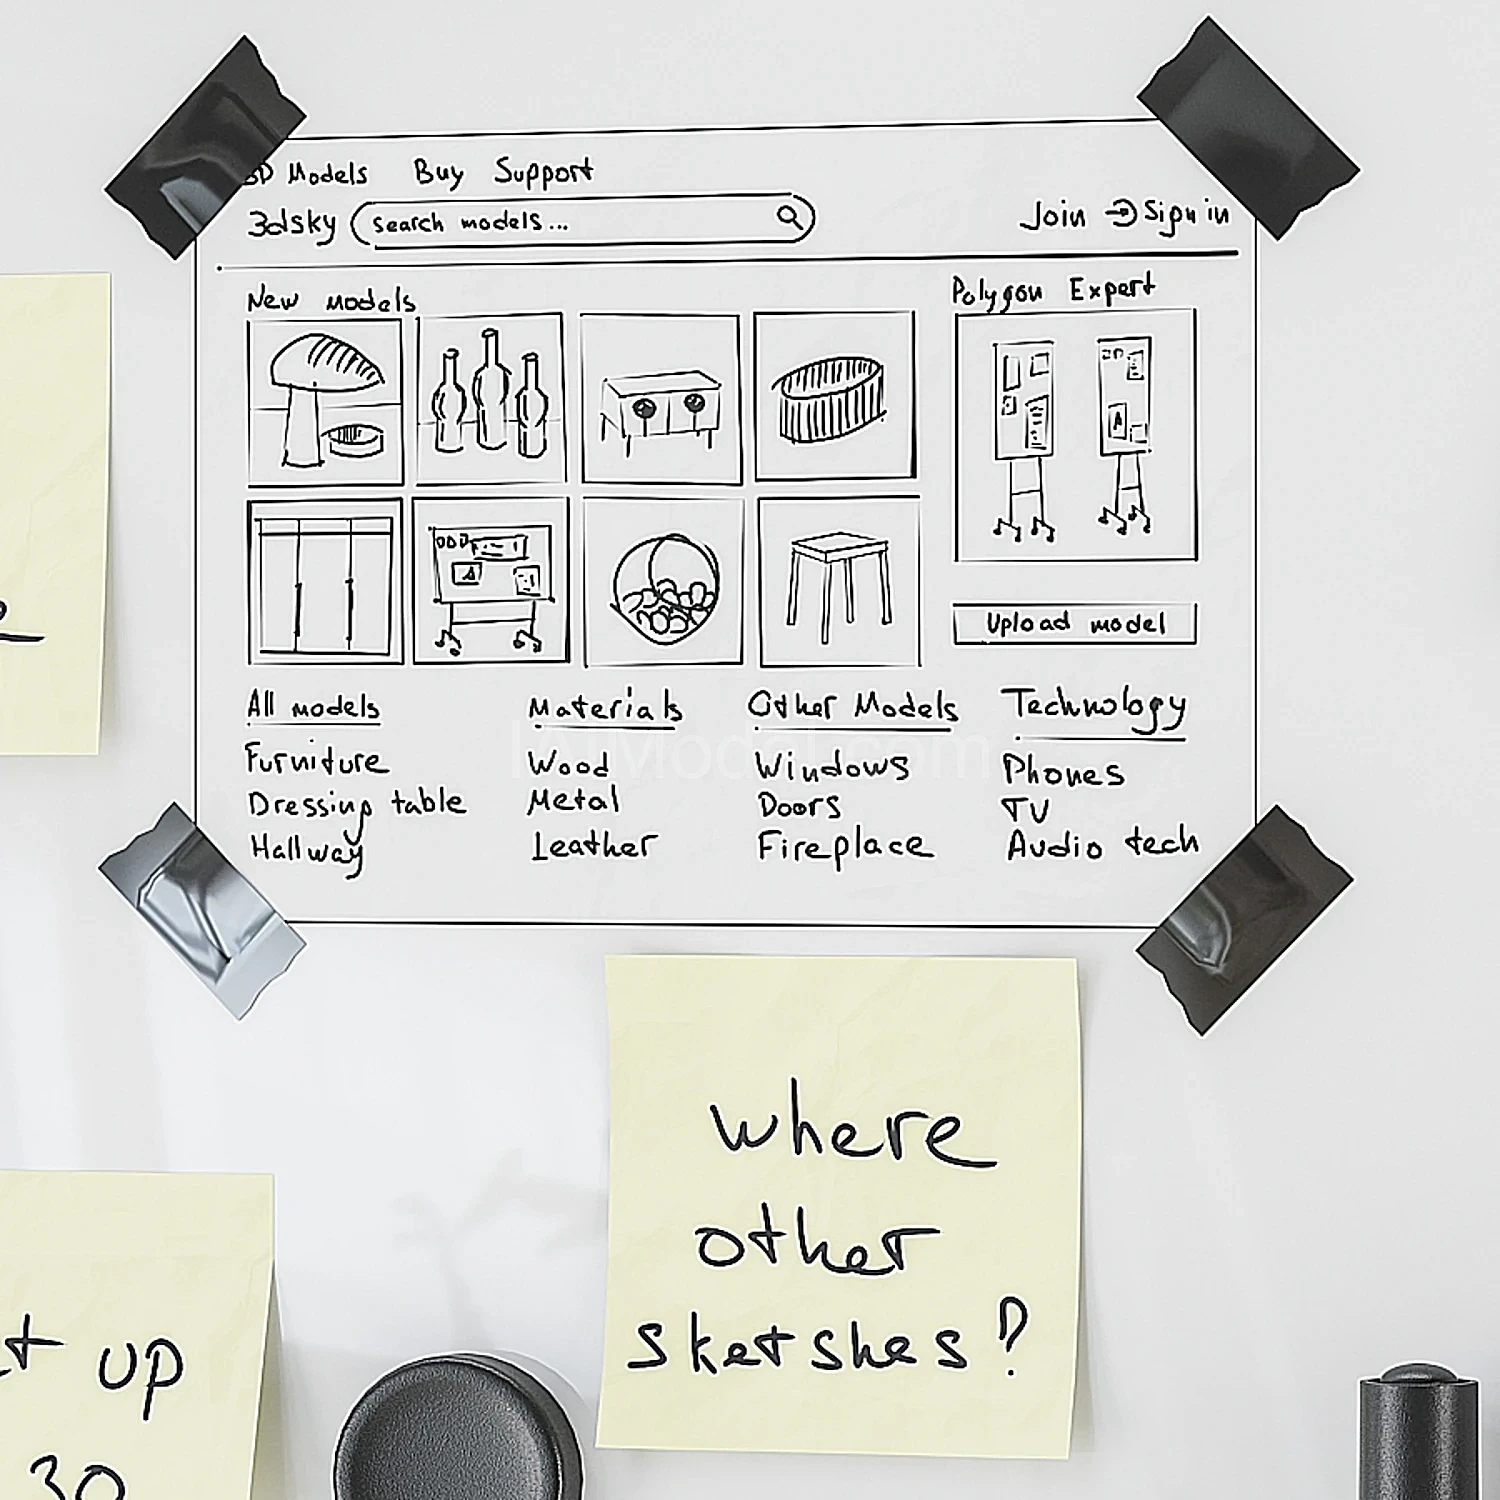 3D Models Buy Support
3dsky Search models... Join Sign in
New models Polygon Expert
Upload model
All models Materials Other Models Technology
Furniture Wood Windows Phones
Dressing table Metal Doors TV
Hallway Leather Fireplace Audio tech
where
other
sketshes?
up
30